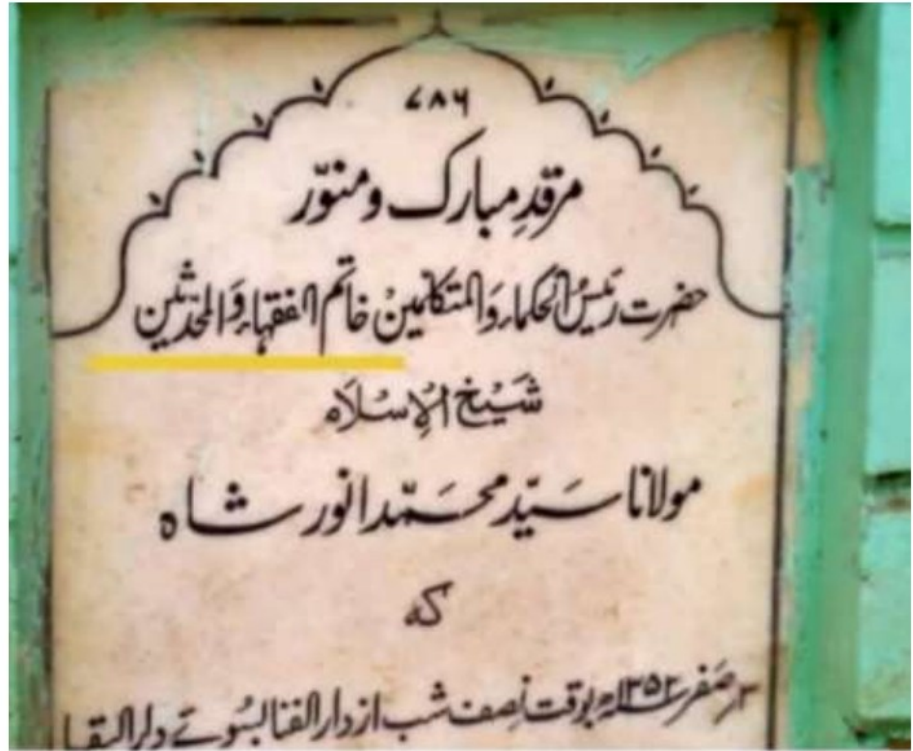 ۷۸۶
مرقدِ مبارک و منوّر
حضرت رئیسُ الحکماءِ وَالمتکلمینُ خاتم الفقہاءِ وَالمحدّثین
شَیْخُ الاِسْلَام
مولانا سَیّد محمّد انور شاہ
کہ
صَفر ۱۳۵۲ھ بوقت نِصف شب از دار الفنا بسُوئے دار البقا